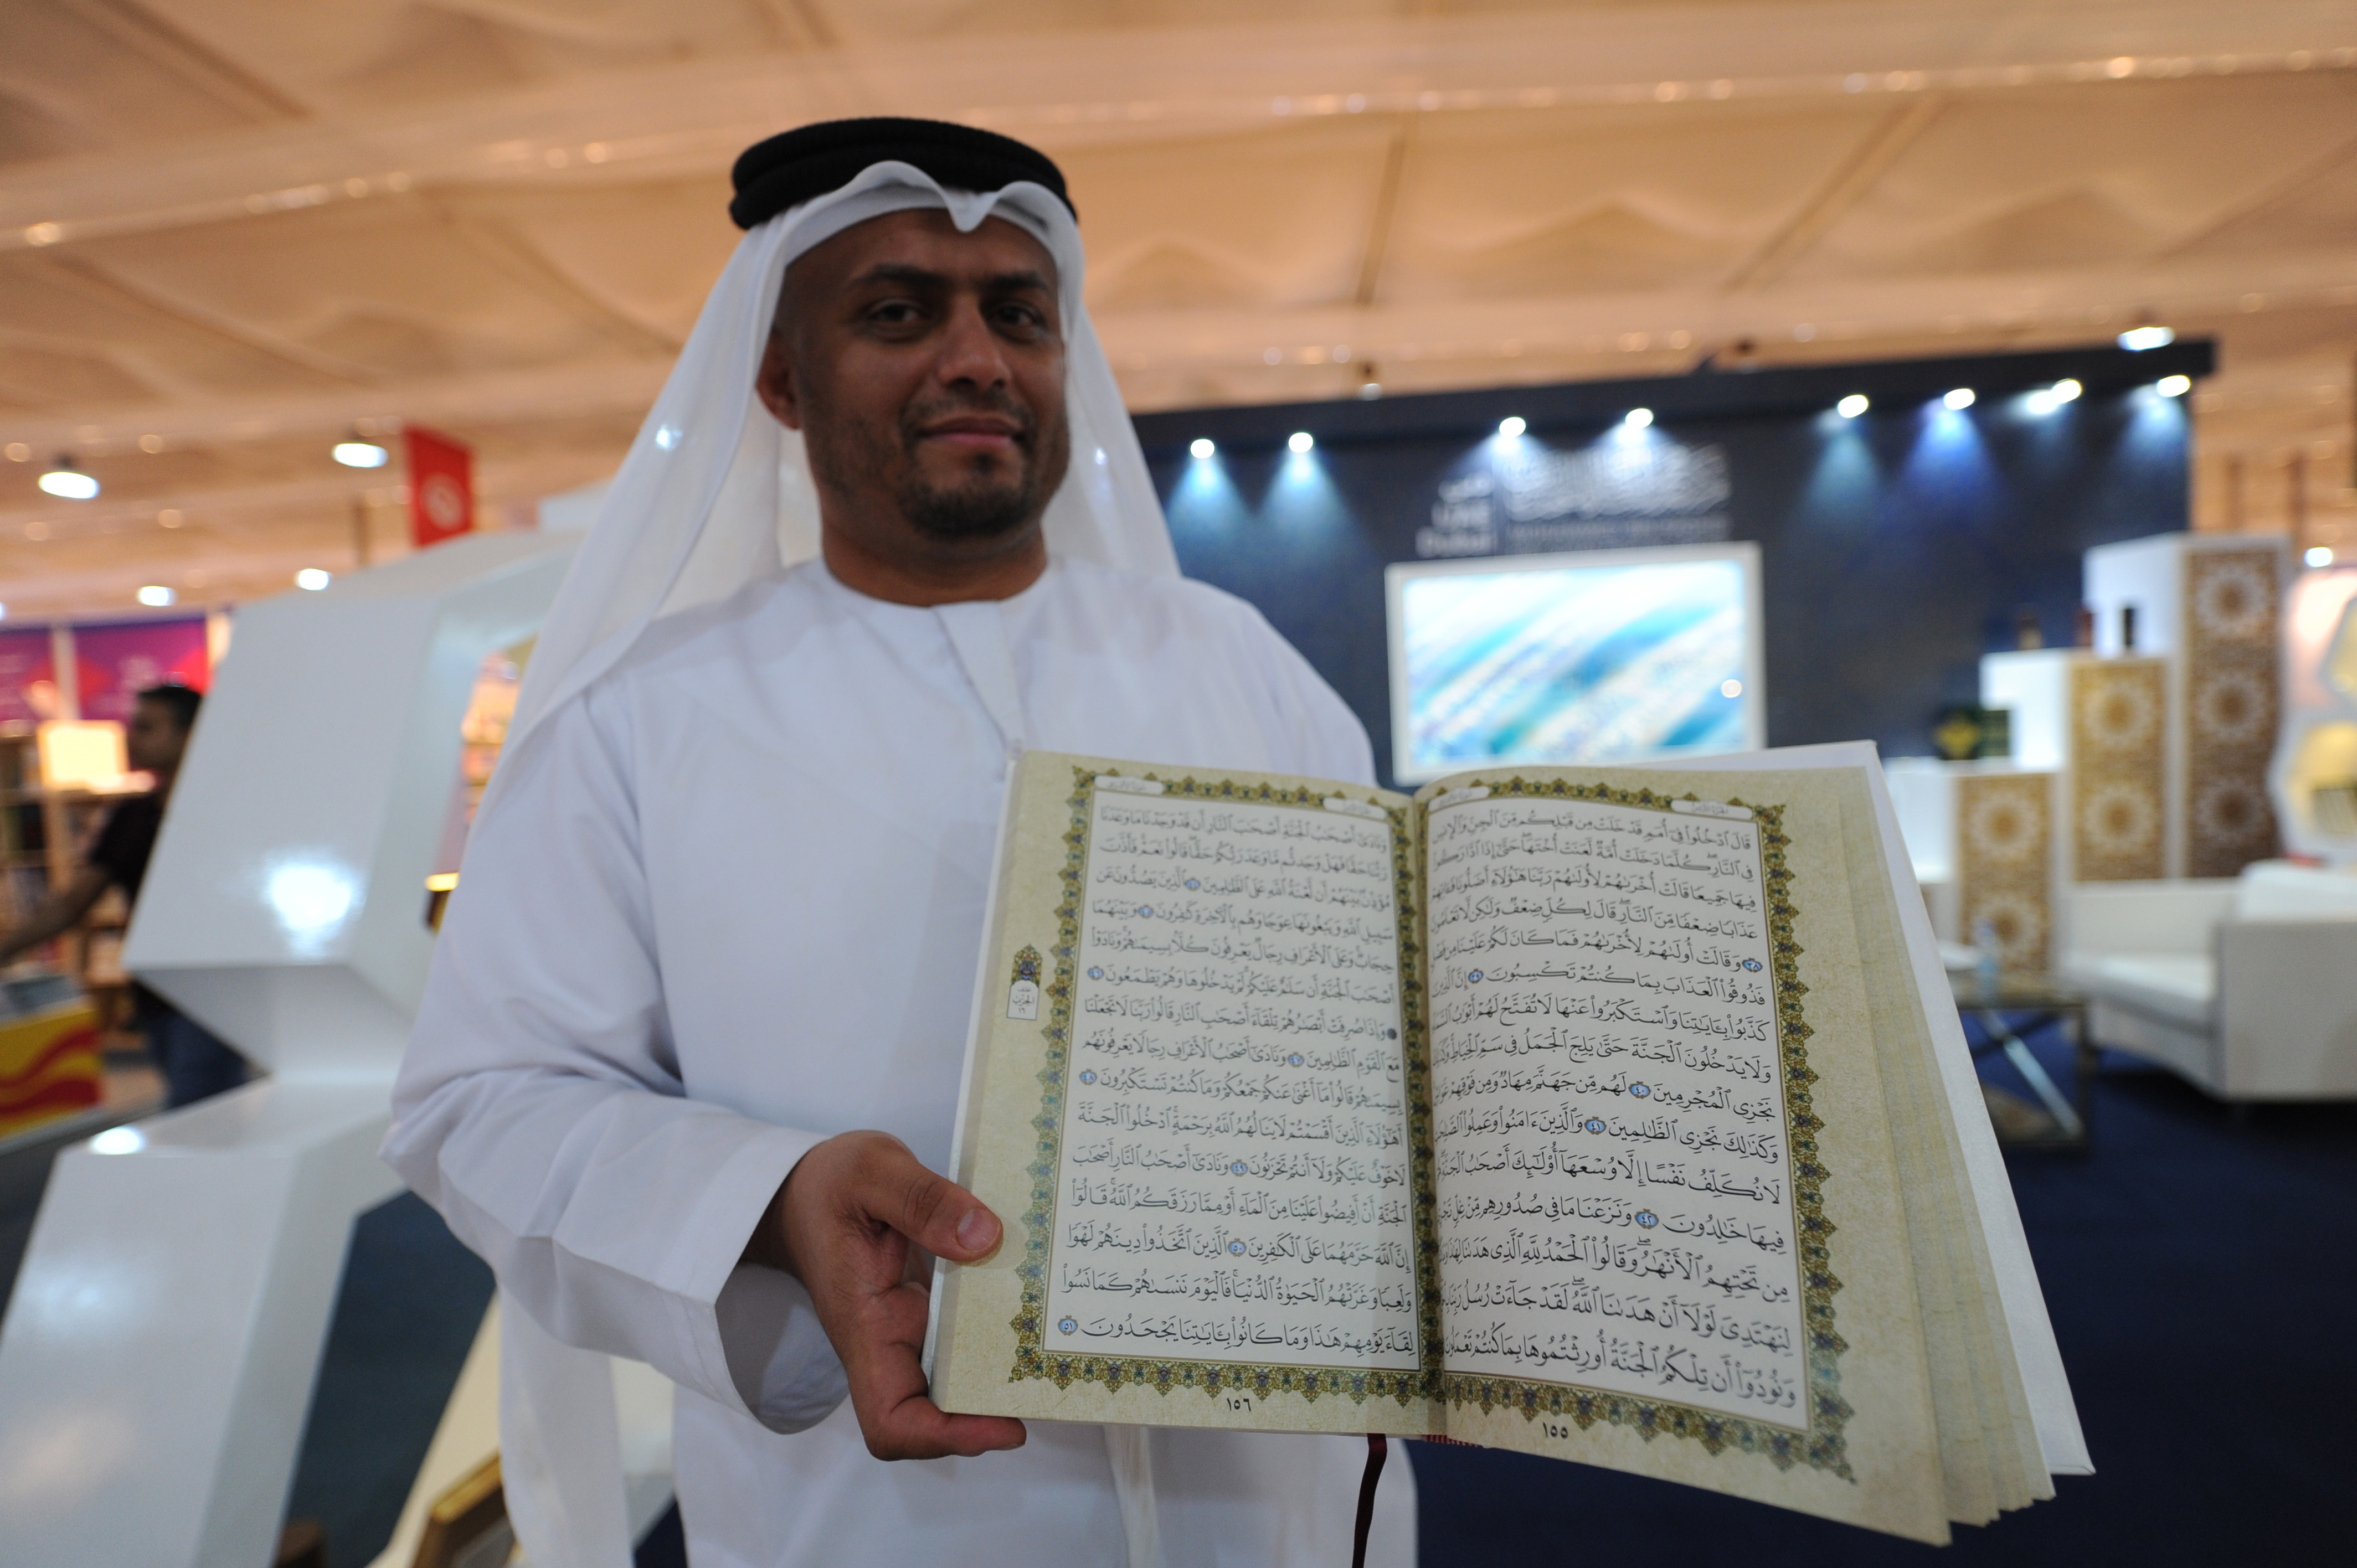 قَالَ ٱدْخُلُوا۟ فِىٓ أُمَمٍ قَدْ خَلَتْ مِن قَبْلِكُم مِّنَ ٱلْجِنِّ وَٱلْإِنسِ
فِى ٱلنَّارِ ۖ كُلَّمَا دَخَلَتْ أُمَّةٌ لَّعَنَتْ أُخْتَهَا ۖ حَتَّىٰٓ إِذَا ٱدَّارَكُوا۟
فِيهَا جَمِيعًا قَالَتْ أُخْرَىٰهُمْ لِأُولَىٰهُمْ رَبَّنَا هَٰٓؤُلَآءِ أَضَلُّونَا فَـَٔاتِهِمْ
عَذَابًا ضِعْفًا مِّنَ ٱلنَّارِ ۖ قَالَ لِكُلٍّ ضِعْفٌ وَلَٰكِن لَّا تَعْلَمُونَ
٣٨ وَقَالَتْ أُولَىٰهُمْ لِأُخْرَىٰهُمْ فَمَا كَانَ لَكُمْ عَلَيْنَا مِن فَضْلٍ
فَذُوقُوا۟ ٱلْعَذَابَ بِمَا كُنتُمْ تَكْسِبُونَ ٣٩ إِنَّ ٱلَّذِينَ
كَذَّبُوا۟ بِـَٔايَٰتِنَا وَٱسْتَكْبَرُوا۟ عَنْهَا لَا تُفَتَّحُ لَهُمْ أَبْوَٰبُ
وَلَا يَدْخُلُونَ ٱلْجَنَّةَ حَتَّىٰ يَلِجَ ٱلْجَمَلُ فِى سَمِّ ٱلْخِيَاطِ
نَجْزِى ٱلْمُجْرِمِينَ ٤٠ لَهُم مِّن جَهَنَّمَ مِهَادٌ وَمِن فَوْقِهِمْ غَوَاشٍ
وَكَذَٰلِكَ نَجْزِى ٱلظَّٰلِمِينَ ٤١ وَٱلَّذِينَ ءَامَنُوا۟ وَعَمِلُوا۟
لَا نُكَلِّفُ نَفْسًا إِلَّا وُسْعَهَآ أُو۟لَٰٓئِكَ أَصْحَٰبُ ٱلْجَنَّةِ
فِيهَا خَٰلِدُونَ ٤٢ وَنَزَعْنَا مَا فِى صُدُورِهِم مِّنْ غِلٍّ
مِن تَحْتِهِمُ ٱلْأَنْهَٰرُ ۖ وَقَالُوا۟ ٱلْحَمْدُ لِلَّهِ ٱلَّذِى هَدَىٰنَا لِهَٰذَا
لِنَهْتَدِىَ لَوْلَآ أَنْ هَدَىٰنَا ٱللَّهُ ۖ لَقَدْ جَآءَتْ رُسُلُ رَبِّنَا
وَنُودُوٓا۟ أَن تِلْكُمُ ٱلْجَنَّةُ أُورِثْتُمُوهَا بِمَا كُنتُمْ تَعْمَلُونَ
١٥٥
وَنَادَىٰٓ أَصْحَٰبُ ٱلْجَنَّةِ أَصْحَٰبَ ٱلنَّارِ أَن قَدْ وَجَدْنَا مَا وَعَدَنَا
رَبُّنَا حَقًّا فَهَلْ وَجَدتُّم مَّا وَعَدَ رَبُّكُمْ حَقًّا قَالُوا۟ نَعَمْ فَأَذَّنَ
مُؤَذِّنٌۢ بَيْنَهُمْ أَن لَّعْنَةُ ٱللَّهِ عَلَى ٱلظَّٰلِمِينَ ٤٤ ٱلَّذِينَ يَصُدُّونَ عَن
سَبِيلِ ٱللَّهِ وَيَبْغُونَهَا عِوَجًا وَهُم بِٱلْـَٔاخِرَةِ كَٰفِرُونَ ٤٥ وَبَيْنَهُمَا
حِجَابٌ وَعَلَى ٱلْأَعْرَافِ رِجَالٌ يَعْرِفُونَ كُلًّۢا بِسِيمَىٰهُمْ وَنَادَوْا۟
أَصْحَٰبَ ٱلْجَنَّةِ أَن سَلَٰمٌ عَلَيْكُمْ لَمْ يَدْخُلُوهَا وَهُمْ يَطْمَعُونَ ٤٦
وَإِذَا صُرِفَتْ أَبْصَٰرُهُمْ تِلْقَآءَ أَصْحَٰبِ ٱلنَّارِ قَالُوا۟ رَبَّنَا لَا تَجْعَلْنَا
مَعَ ٱلْقَوْمِ ٱلظَّٰلِمِينَ ٤٧ وَنَادَىٰٓ أَصْحَٰبُ ٱلْأَعْرَافِ رِجَالًا يَعْرِفُونَهُم
بِسِيمَىٰهُمْ قَالُوا۟ مَآ أَغْنَىٰ عَنكُمْ جَمْعُكُمْ وَمَا كُنتُمْ تَسْتَكْبِرُونَ ٤٨
أَهَٰٓؤُلَآءِ ٱلَّذِينَ أَقْسَمْتُمْ لَا يَنَالُهُمُ ٱللَّهُ بِرَحْمَةٍ ۚ ٱدْخُلُوا۟ ٱلْجَنَّةَ
لَا خَوْفٌ عَلَيْكُمْ وَلَآ أَنتُمْ تَحْزَنُونَ ٤٩ وَنَادَىٰٓ أَصْحَٰبُ ٱلنَّارِ أَصْحَٰبَ
ٱلْجَنَّةِ أَنْ أَفِيضُوا۟ عَلَيْنَا مِنَ ٱلْمَآءِ أَوْ مِمَّا رَزَقَكُمُ ٱللَّهُ ۚ قَالُوٓا۟
إِنَّ ٱللَّهَ حَرَّمَهُمَا عَلَى ٱلْكَٰفِرِينَ ٥٠ ٱلَّذِينَ ٱتَّخَذُوا۟ دِينَهُمْ لَهْوًا
وَلَعِبًا وَغَرَّتْهُمُ ٱلْحَيَوٰةُ ٱلدُّنْيَا ۚ فَٱلْيَوْمَ نَنسَىٰهُمْ كَمَا نَسُوا۟
لِقَآءَ يَوْمِهِمْ هَٰذَا وَمَا كَانُوا۟ بِـَٔايَٰتِنَا يَجْحَدُونَ ٥١
١٥٦
الحزب
١٦
دبي
UAE
Dubai